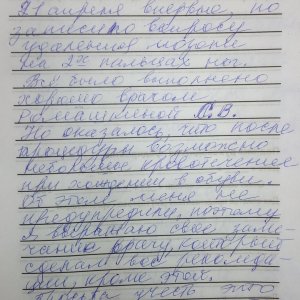 21 апреля впервые, по
записи по вопросу
удаления мозоли
на 2х пальцах ног.
Всё было выполнено
хорошо врачом
Ромашкиной С.В.
Но оказалось, что после
процедуры возможно
небольшое кровотечение
при хождении в обуви.
От этом меня не
предупредили, поэтому
я высказываю своё заме-
чание врачу, который
сделал все рекоменда-
ции, кроме этой.
Прошу учесть это